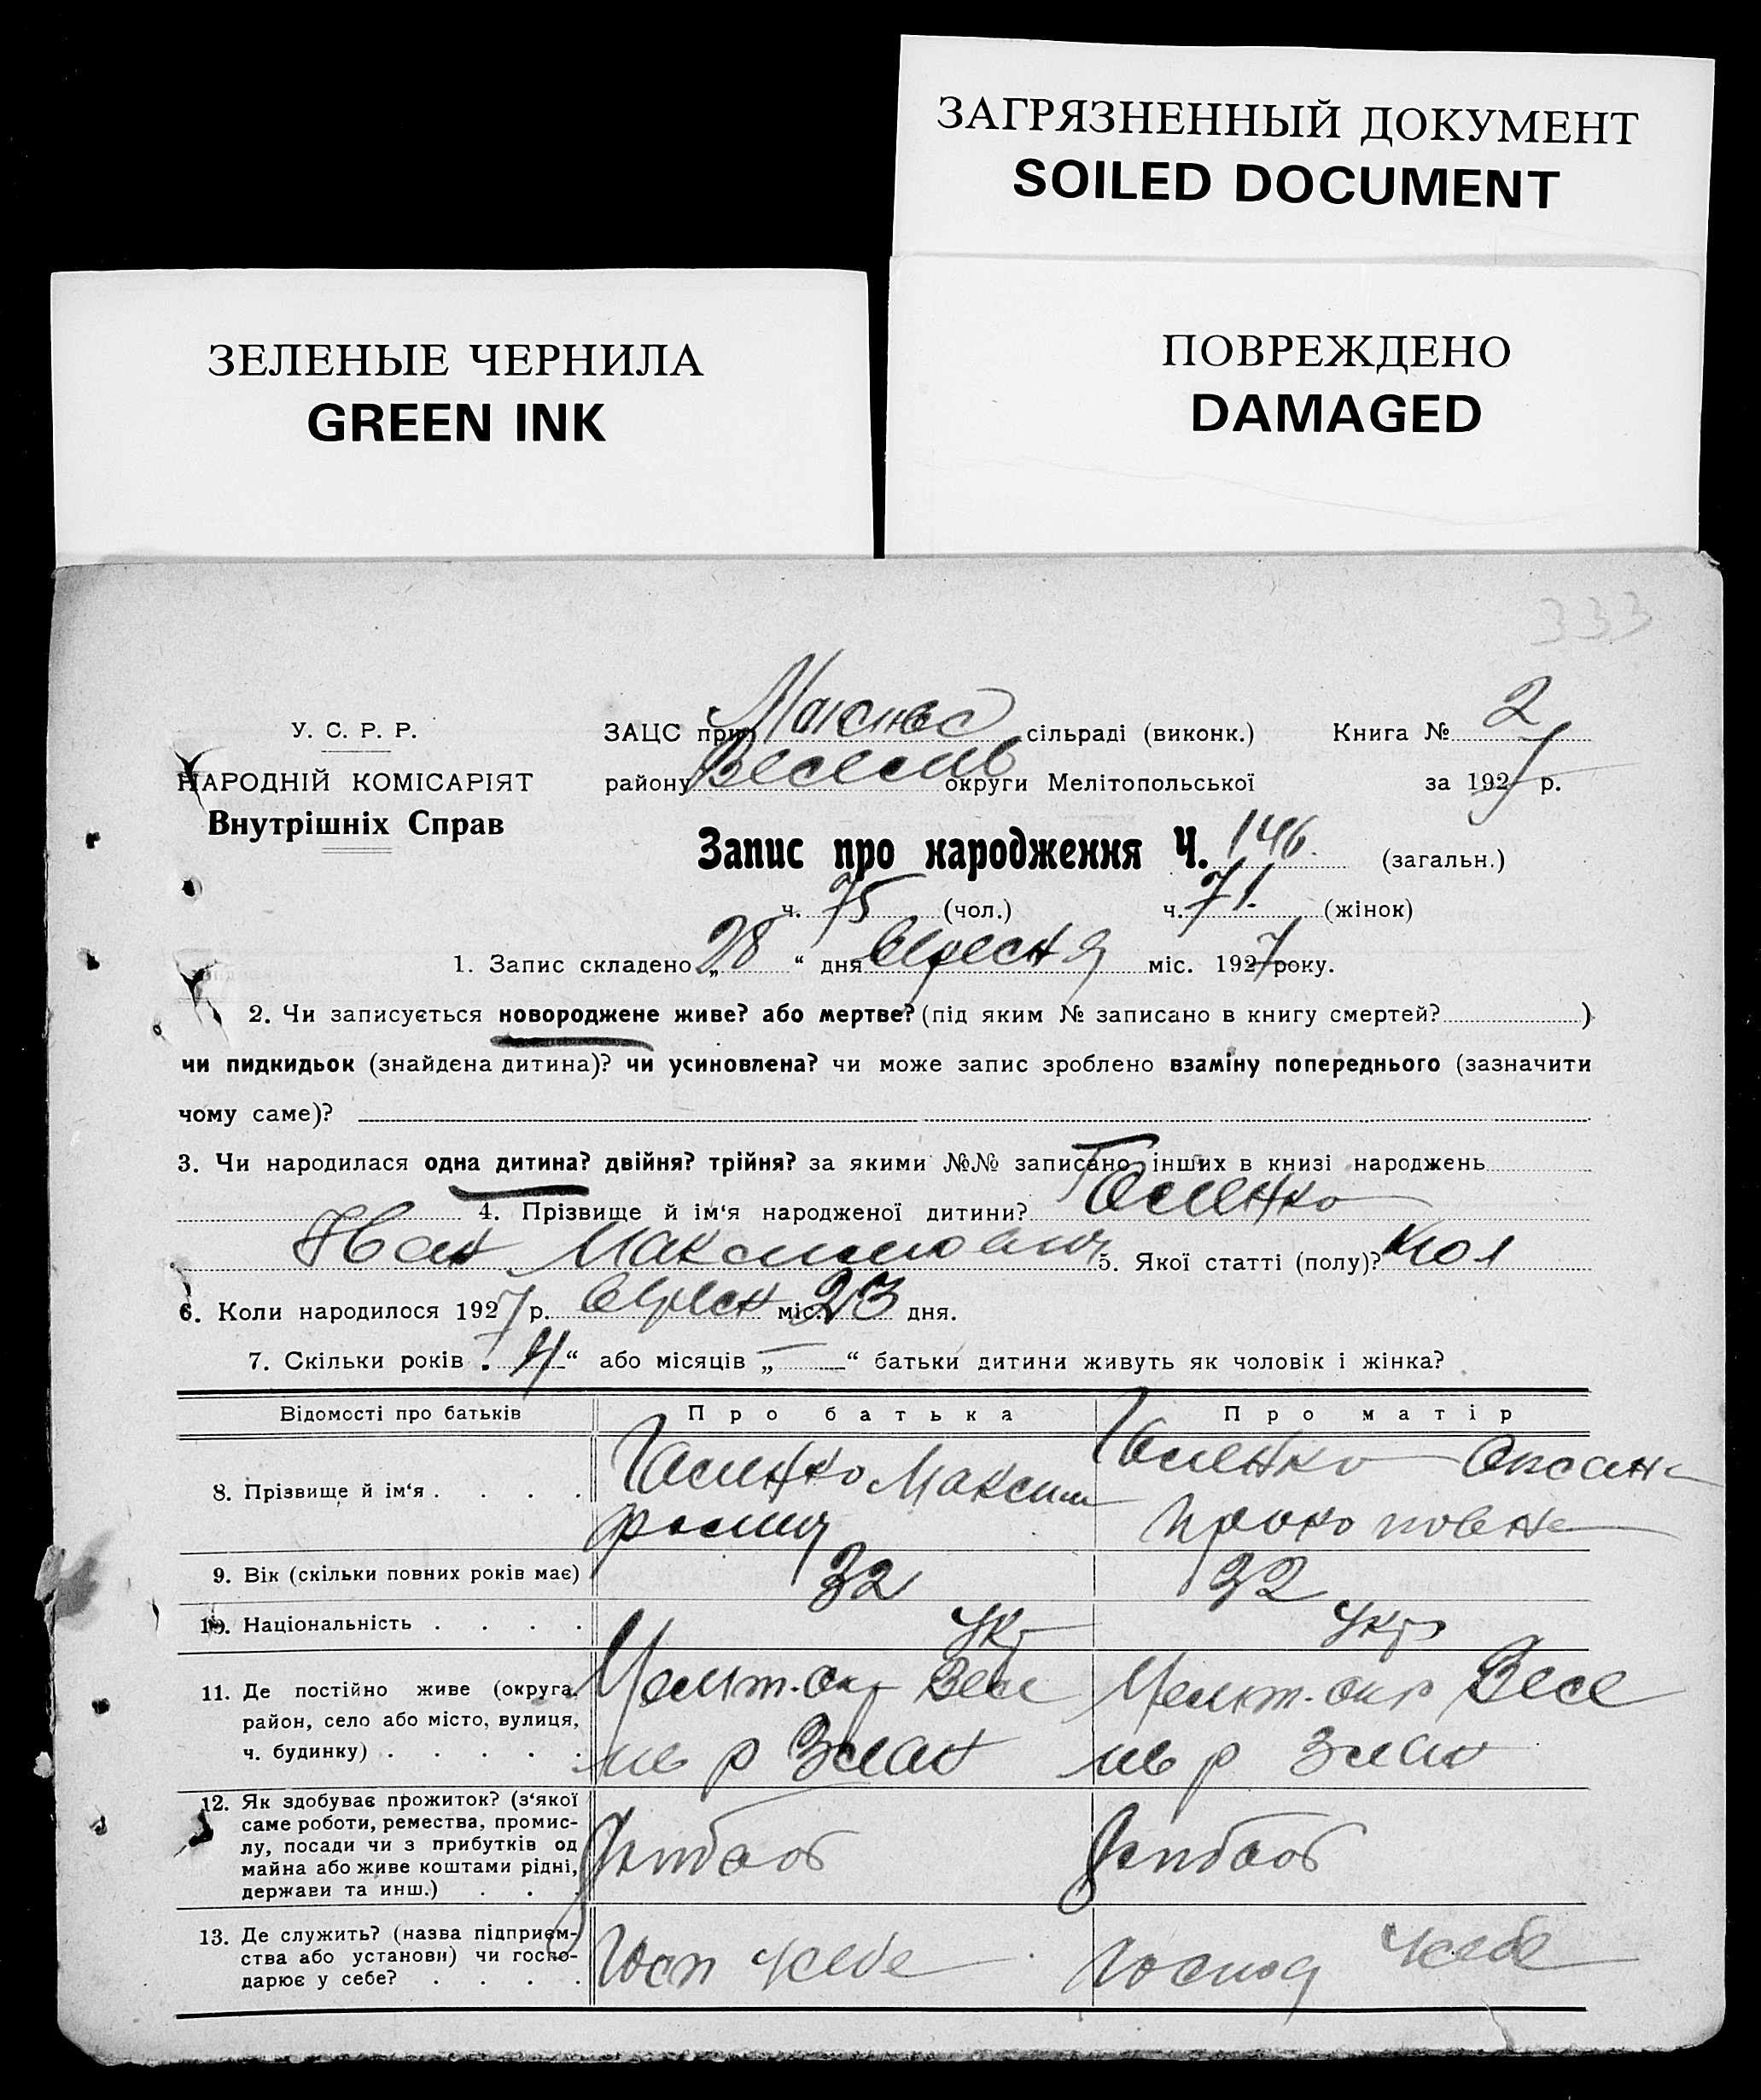 ЗАГРЯЗНЕННЫЙ ДОКУМЕНТ
SOILED DOCUMENT
ЗЕЛЕНЫЕ ЧЕРНИЛА
GREEN INK
ПОВРЕЖДЕНО
DAMAGED
333
У. С. Р. Р.
НАРОДНІЙ КОМІСАРІЯТ
Внутрішніх Справ
ЗАЦС при сільраді (виконк.) Книга № 2
району Веселів округи Мелітопольської за 1927 р.
Запис про народження Ч. 146. (загальн.)
ч. 75 (чол.) ч. 71. (жінок)
1. Запис складено „28“ дня вересня міс. 1927 року.
2. Чи записується новороджене живе? або мертве? (під яким № записано в книгу смертей? )
чи пидкидьок (знайдена дитина)? чи усиновлена? чи може запис зроблено взаміну попереднього (зазначити
чому саме)?
3. Чи народилася одна дитина? двійня? трійня? за якими №№ записано інших в книзі народжень
4. Прізвище й ім‘я народженої дитини?
Іван Максимович 5. Якої статті (полу)? чол
6. Коли народилося 1927 р. вересн міс. 23 дня.
7. Скільки років „4“ або місяців „—“ батьки дитини живуть як чоловік і жінка?
Відомості про батьків Про батька Про матір
8. Прізвище й ім‘я . . . . Максим Оксана
Прокоповна
9. Вік (скільки повних років має) 32 32
10. Національність . . . . Укр Укр
11. Де постійно живе (округа, Меліт. окр Весе Меліт. окр Весе
район, село або місто, вулиця,
ч. будинку) . . . . . лів р лів р
12. Як здобуває прожиток? (з‘якої
саме роботи, ремества, промис-
лу, посади чи з прибутків од
майна або живе коштами рідні, хлібороб хлібороб
держави та инш.) . . .
13. Де служить? (назва підприєм-
ства або установи) чи госпо- Госп у себе Господ у себе
дарює у себе? . . . .